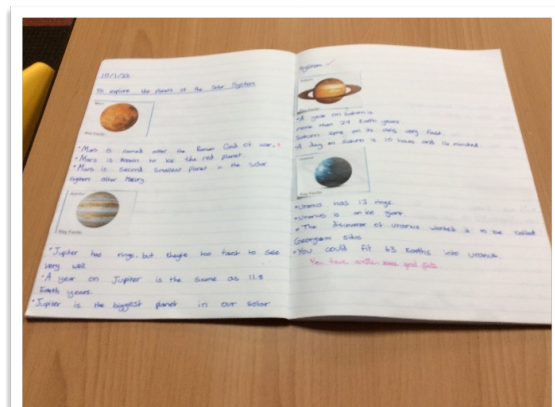 10/1/22
To explore the planets of the Solar System
Mars
• Mars is named after the Roman God of war.
• Mars is known to be the red planet.
• Mars is second smallest planet in the solar
system after Mercury.
Jupiter
• Jupiter has rings, but they're too faint to see
very well.
• A year on Jupiter is the same as 11.8
Earth years.
• Jupiter is the biggest planet in our solar
system
Saturn
• A year on Saturn is
more than 29 Earth years.
Saturn spins on its axis very fast.
A day on Saturn is 10 hours and 14 minutes.
• Uranus has 13 rings.
• Uranus is an ice giant.
• The discoverer of Uranus wanted it to be called
Georgium Sidus.
• You could fit 63 Earths into Uranus.
You have written some good facts.